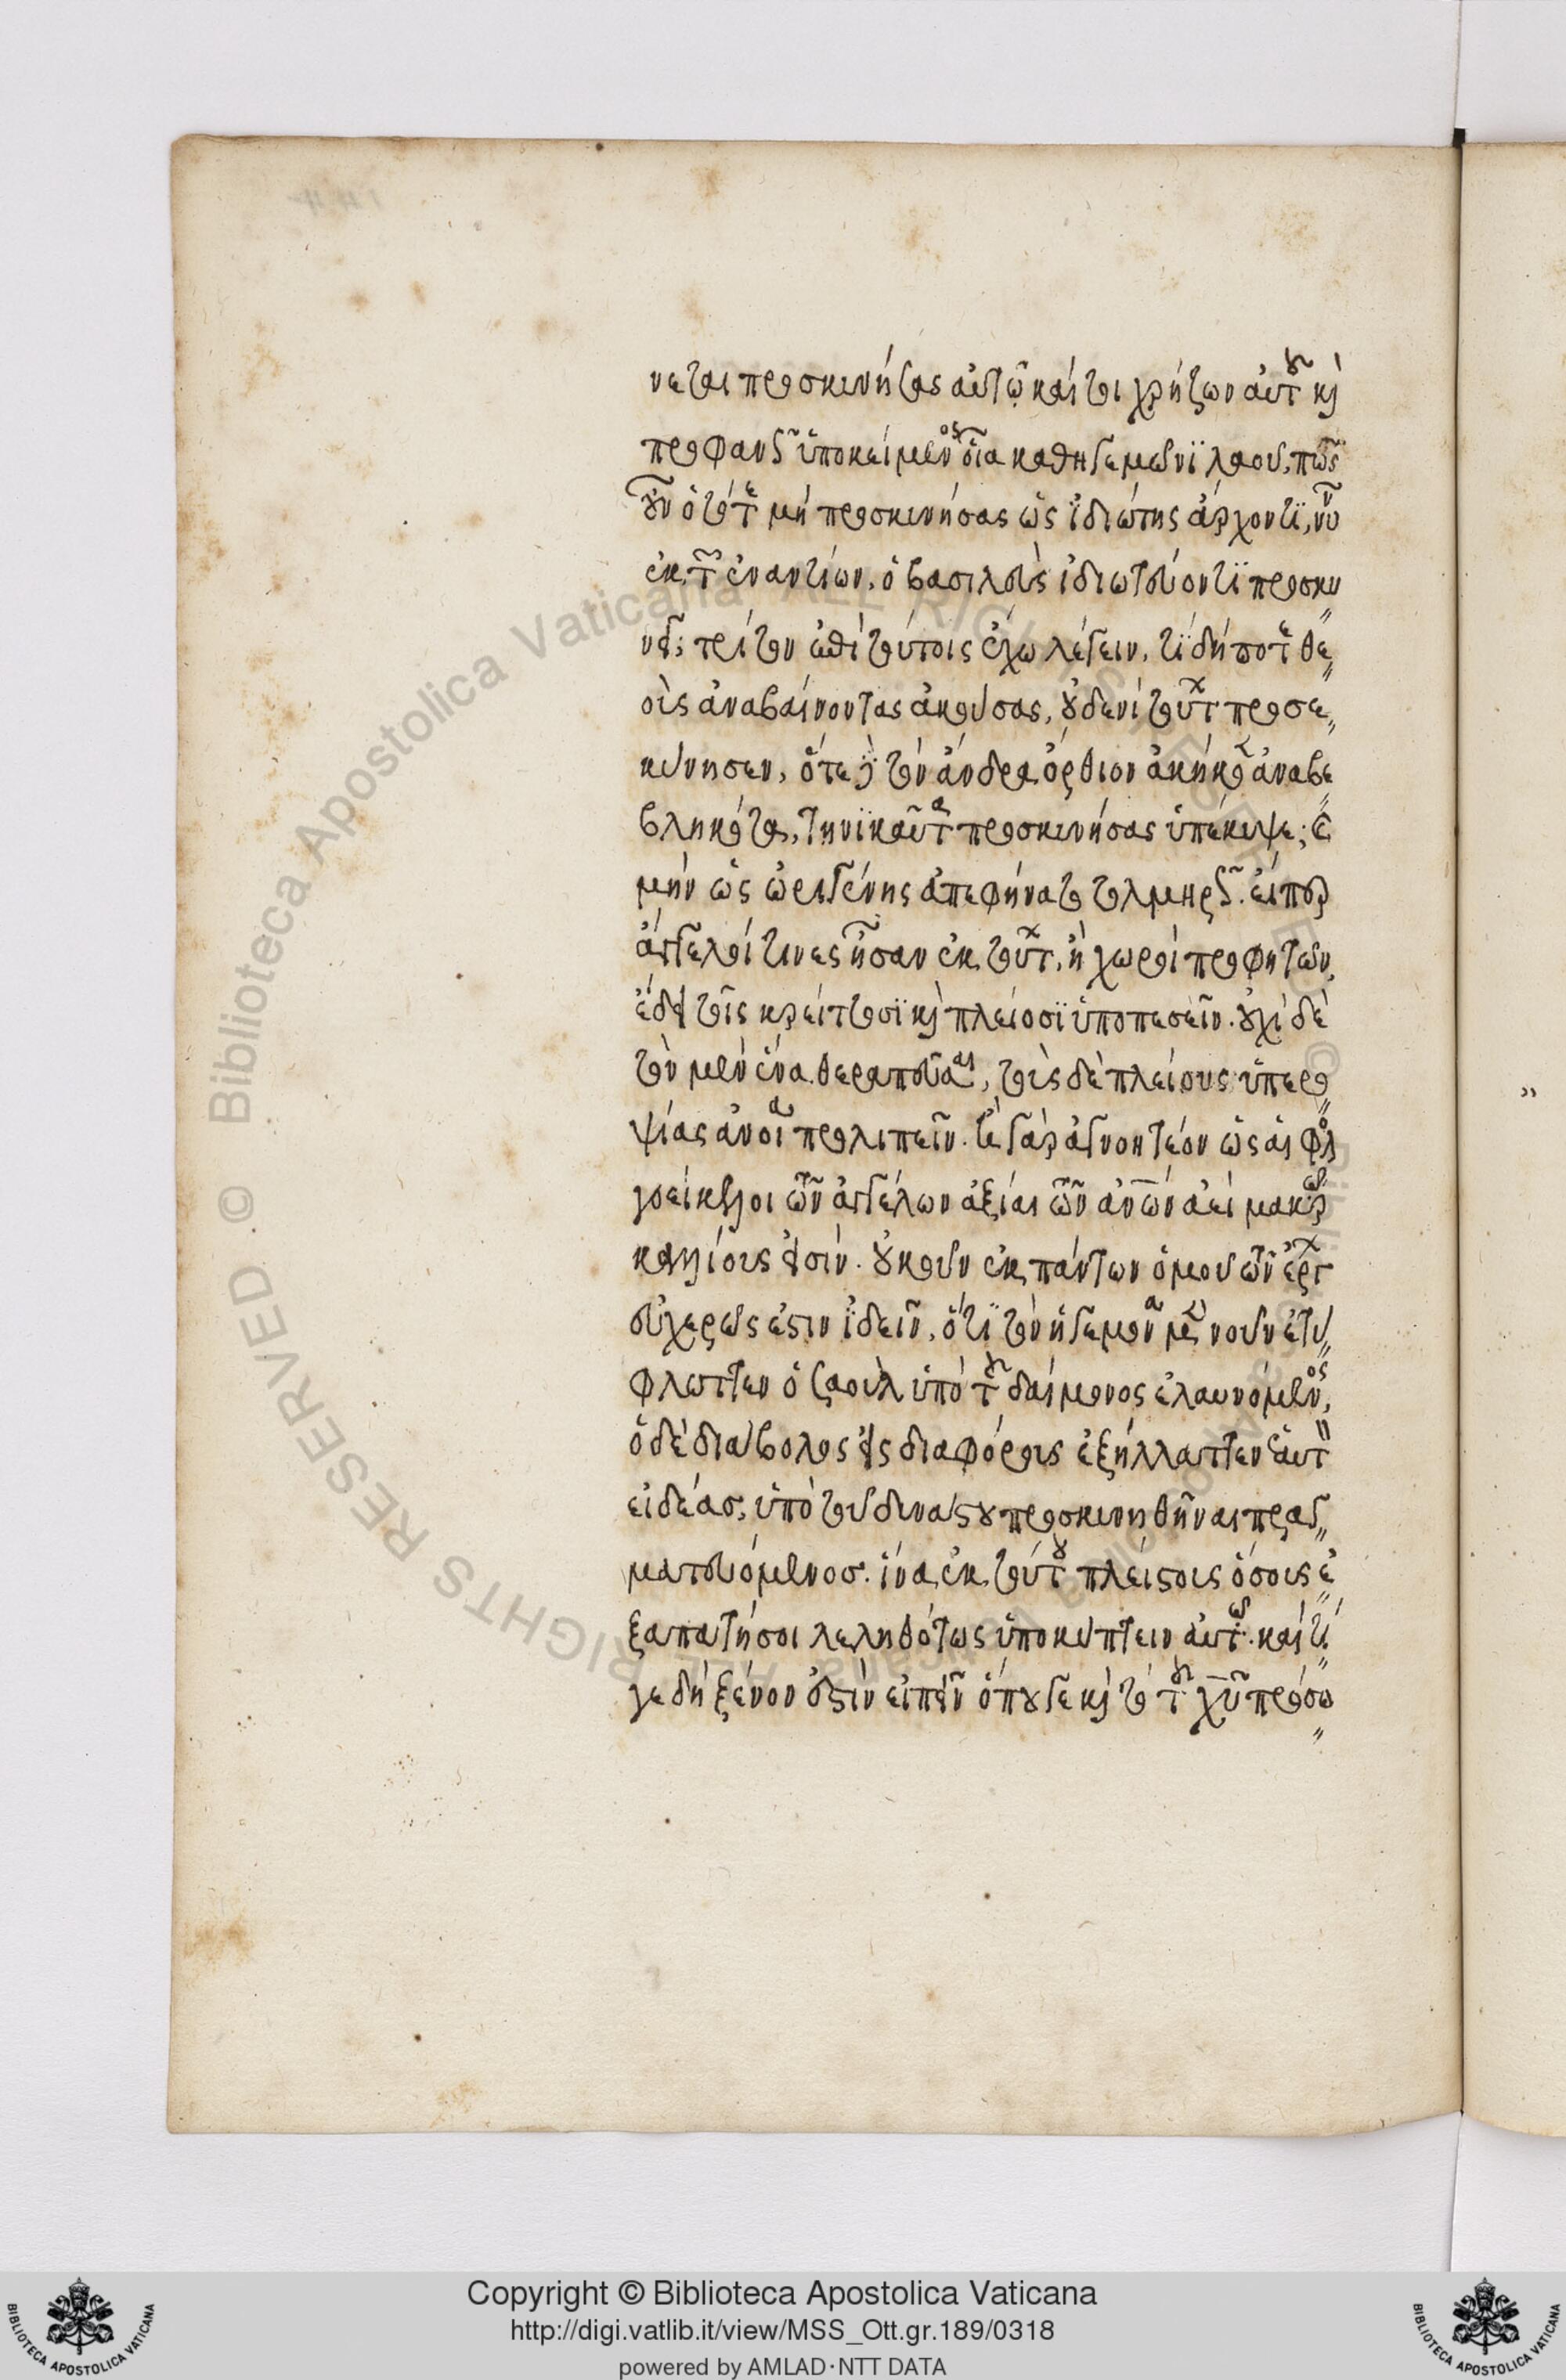 νεται προσκυνήσας αὐτῷ καίτοι χρήζων αὐτοῦ καὶ
προφανῶς ὑποκείμενος οἷα καθηγεμόνι λαοῦ, πῶς
οὖν ὁ τότε μὴ προσκυνήσας ὡς ἰδιώτης ἄρχοντι, νῦν
ἐκ τῶν ἐναντίων, ὁ βασιλεὺς ἰδιωτεύοντι προσκυ
νεῖ; τρίτον ἐπὶ τούτοις ἔχω λέγειν, τί δήποτε θε
οὺς ἀναβαίνοντας ἀκούσας, οὐδενὶ τούτων προσε
κύνησεν, ὅτε δὲ τὸν ἄνδρα ὄρθιον ἀκήκοεν ἀναβε
βληκότα, τηνικαῦτα προσκυνήσας ὑπέκυψε;
μὴν ὡς ὠριγένης ἀπεφήνατο τολμηρῶς. εἴπερ
ἄγγελοί τινες ἦσαν ἐκ τούτων, ἢ χωροὶ προφητῶν,
ἔδει τοῖς κρείττοσι καὶ πλείοσι ὑποπεσεῖν. οὐχὶ δὲ
τὸν μὲν ἕνα θεραπεῦσαι, τοὺς δὲ πλείους ὑπερο
ψίας ἀνοίᾳ προλιπεῖν. οὔτε γὰρ ἀγνοητέον ὡς αἱ
γοείκελοι τῶν ἀγγέλων ἀξίαι τῶν ἀνῶν ἀεὶ μακρῷ
καλλίους εἰσίν. οὐκοῦν ἐκ πάντων ὁμοῦ τῶν ἔργων
εὐχερῶς ἐστιν ἰδεῖν, ὅτι τὸν ἡγεμόνα μὲν νοῦν ἐτύ
φλωττεν ὁ σαοὺλ ὑπὸ τοῦ δαίμονος ἐλαυνόμενος,
ὁ δὲ διάβολος εἰς διαφόρους ἐξήλλαττεν ἑαυτὸν
εἰδέας, ὑπὸ τοῦ δυνάστου προσκυνηθῆναι πραγ
ματευόμενος. ἵνα ἐκ τούτου πλείστους ὅσους ἐ
ξαπατήσοι λεληθότως ὑποκύπτειν αὐτῷ. καὶ τί
γε δὴ ξένον ἐστὶν εἰπεῖν ὅπου γε καὶ τὸ τοῦ χῦ πρόσω